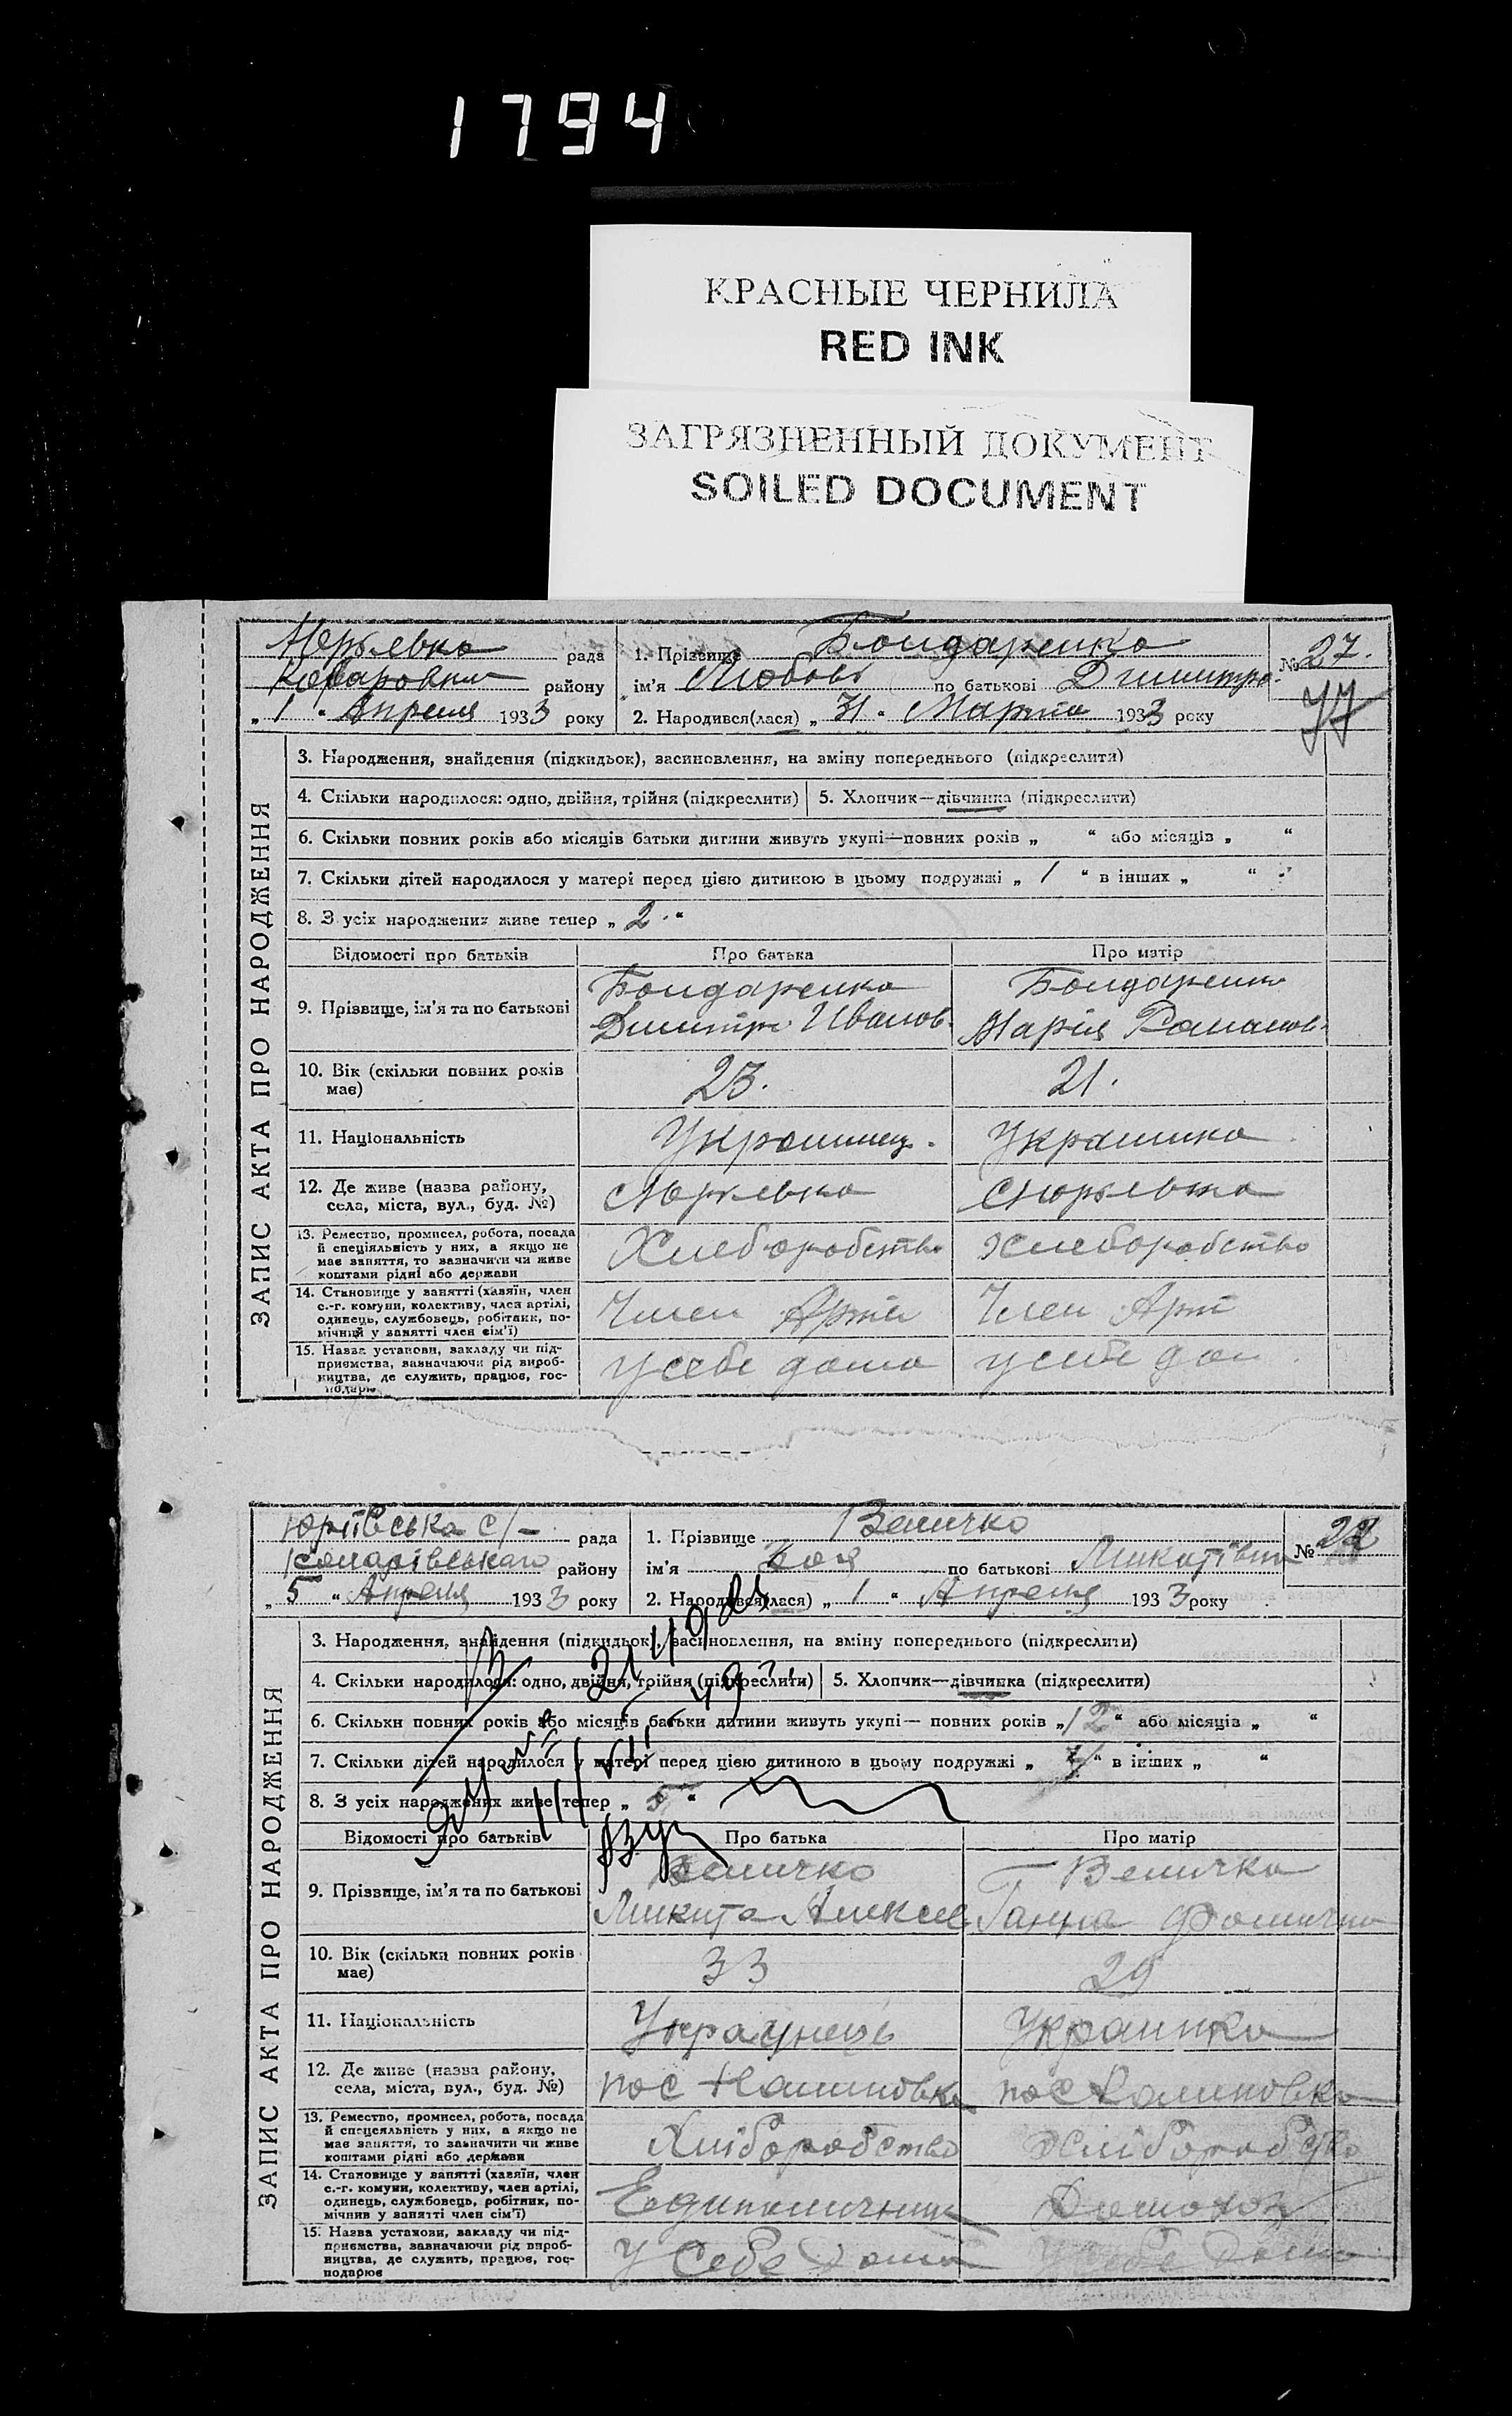 1794
КРАСНЫЕ ЧЕРНИЛА
RED INK
ЗАГРЯЗНЕННЫЙ ДОКУМЕНТ
SOILED DOCUMENT
рада
1. Прізвище Бондаренко
№ 27.
району
ім'я Любовь по батькові Дмитро.
„ 1 " Апреля 1933 року
2. Народився(лася) „ 31 " Марта 1933 року
ЗАПИС АКТА ПРО НАРОДЖЕННЯ
3. Народження, знайдення (підкидьок), засиновлення, на зміну попереднього (підкреслити)
4. Скільки народилося: одно, двійня, трійня (підкреслити)
5. Хлопчик—дівчинка (підкреслити)
6. Скільки повних років або місяців батьки дитини живуть укупі—повних років „ “ або місяців „ “
7. Скільки дітей народилося у матері перед цією дитиною в цьому подружжі „ 1 “ в інших „ “
8. З усіх народжених живе тепер „ 2. “
Відомості про батьків
Про батька
Про матір
9. Прізвище, ім'я та по батькові
Бондаренко
Дмитро Иванов.
Бондаренко
Марія Романов.
10. Вік (скільки повних років
має)
23.
21.
11. Національність
Украинец.
Украинка
12. Де живе (назва району,
села, міста, вул., буд. №)
Юрьевка
13. Ремество, промисел, робота, посада
й спеціяльність у них, а якщо не
має заняття, то зазначити чи живе
коштами рідні або держави
Хлеборобство
Хлеборобство
14. Становище у занятті (хазяїн, член
с.-г. комуни, колективу, член артілі,
одинець, службовець, робітник, по-
мічний у занятті член сім'ї)
Член Арте
Член Арт
15. Назва установи, закладу чи під-
приємства, зазначаючи рід вироб-
ництва, де служить, працює, гос-
подарює
у себе дома
у себе дом
Юріївська с/- рада
1. Прізвище Величко
№ 28
району
ім'я по батькові Микитівна
„ 5 “ Апреля 1933 року
2. Народився(лася) „ 1 “ Апреля 1933 року
ЗАПИС АКТА ПРО НАРОДЖЕННЯ
3. Народження, знайдення (підкидьок), засиновлення, на зміну попереднього (підкреслити)
4. Скільки народилося: одно, двійня, трійня (підкреслити)
5. Хлопчик—дівчинка (підкреслити)
6. Скільки повних років або місяців батьки дитини живуть укупі— повних років „ 12 “ або місяців „ “
7. Скільки дітей народилося у матері перед цією дитиною в цьому подружжі „ “ в інших „ “
8. З усіх народжених живе тепер „ 5 “
Відомості про батьків
Про батька
Про матір
9. Прізвище, ім'я та по батькові
Величко
Микита Алексее
Величко
Ганна Фомична
10. Вік (скільки повних років
має)
33
29
11. Національність
Украінець
Украинка
12. Де живе (назва району,
села, міста, вул., буд. №)
пос Калиновка
пос Калиновка
13. Ремество, промисел, робота, посада
й спецеяльність у них, а якщо не
має заняття, то зазначити чи живе
коштами рідні або держави
Хліборобство
Хліборобство
14. Становище у занятті (хазяїн, член
с.-г. комуни, колективу, член артілі,
одинець, службовець, робітник, по-
мічнив у занятті член сім'ї)
Единоличник
15. Назва установи, закладу чи під-
приємства, зазначаючи рід вироб-
ництва, де служить, працює, гос-
подарює
У себе дома
У себе дома